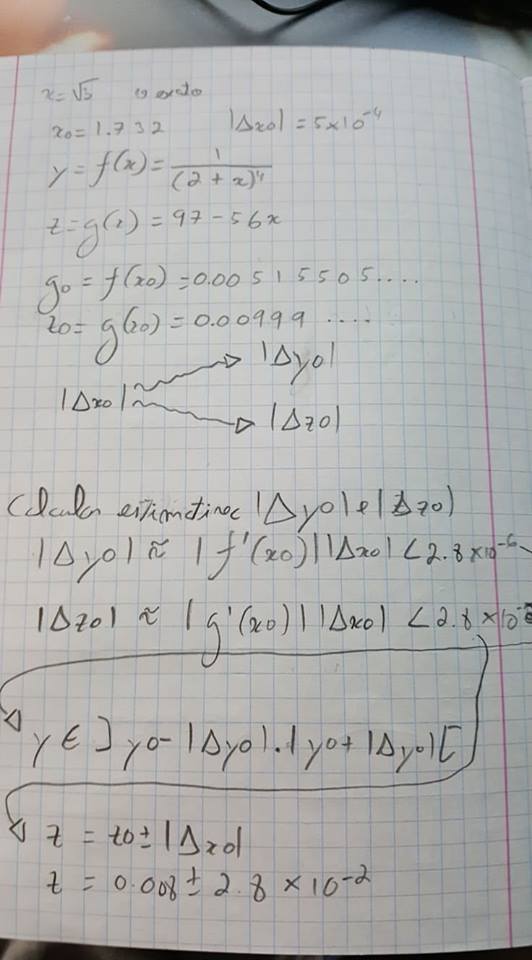 x = √3 ↳ exato
x0 = 1.732 |Δx0| = 5×10⁻⁴
y = f(x) = 1/(2 + x)⁴
z = g(x) = 97 - 56x
y0 = f(x0) = 0.00515505....
z0 = g(x0) = 0.00999 ....
|Δy0|
|Δx0|
|Δz0|
Calcular |Δy0| e |Δz0|
|Δy0| ≈ |f'(x0)||Δx0| < 2.8×10⁻⁶
|Δz0| ≈ |g'(x0)||Δx0| < 2.8×10
y ∈ ] y0 - |Δy0|, y0 + |Δy0| [
z = z0 ± |Δx0|
z = 0.008 ± 2.8 × 10⁻²